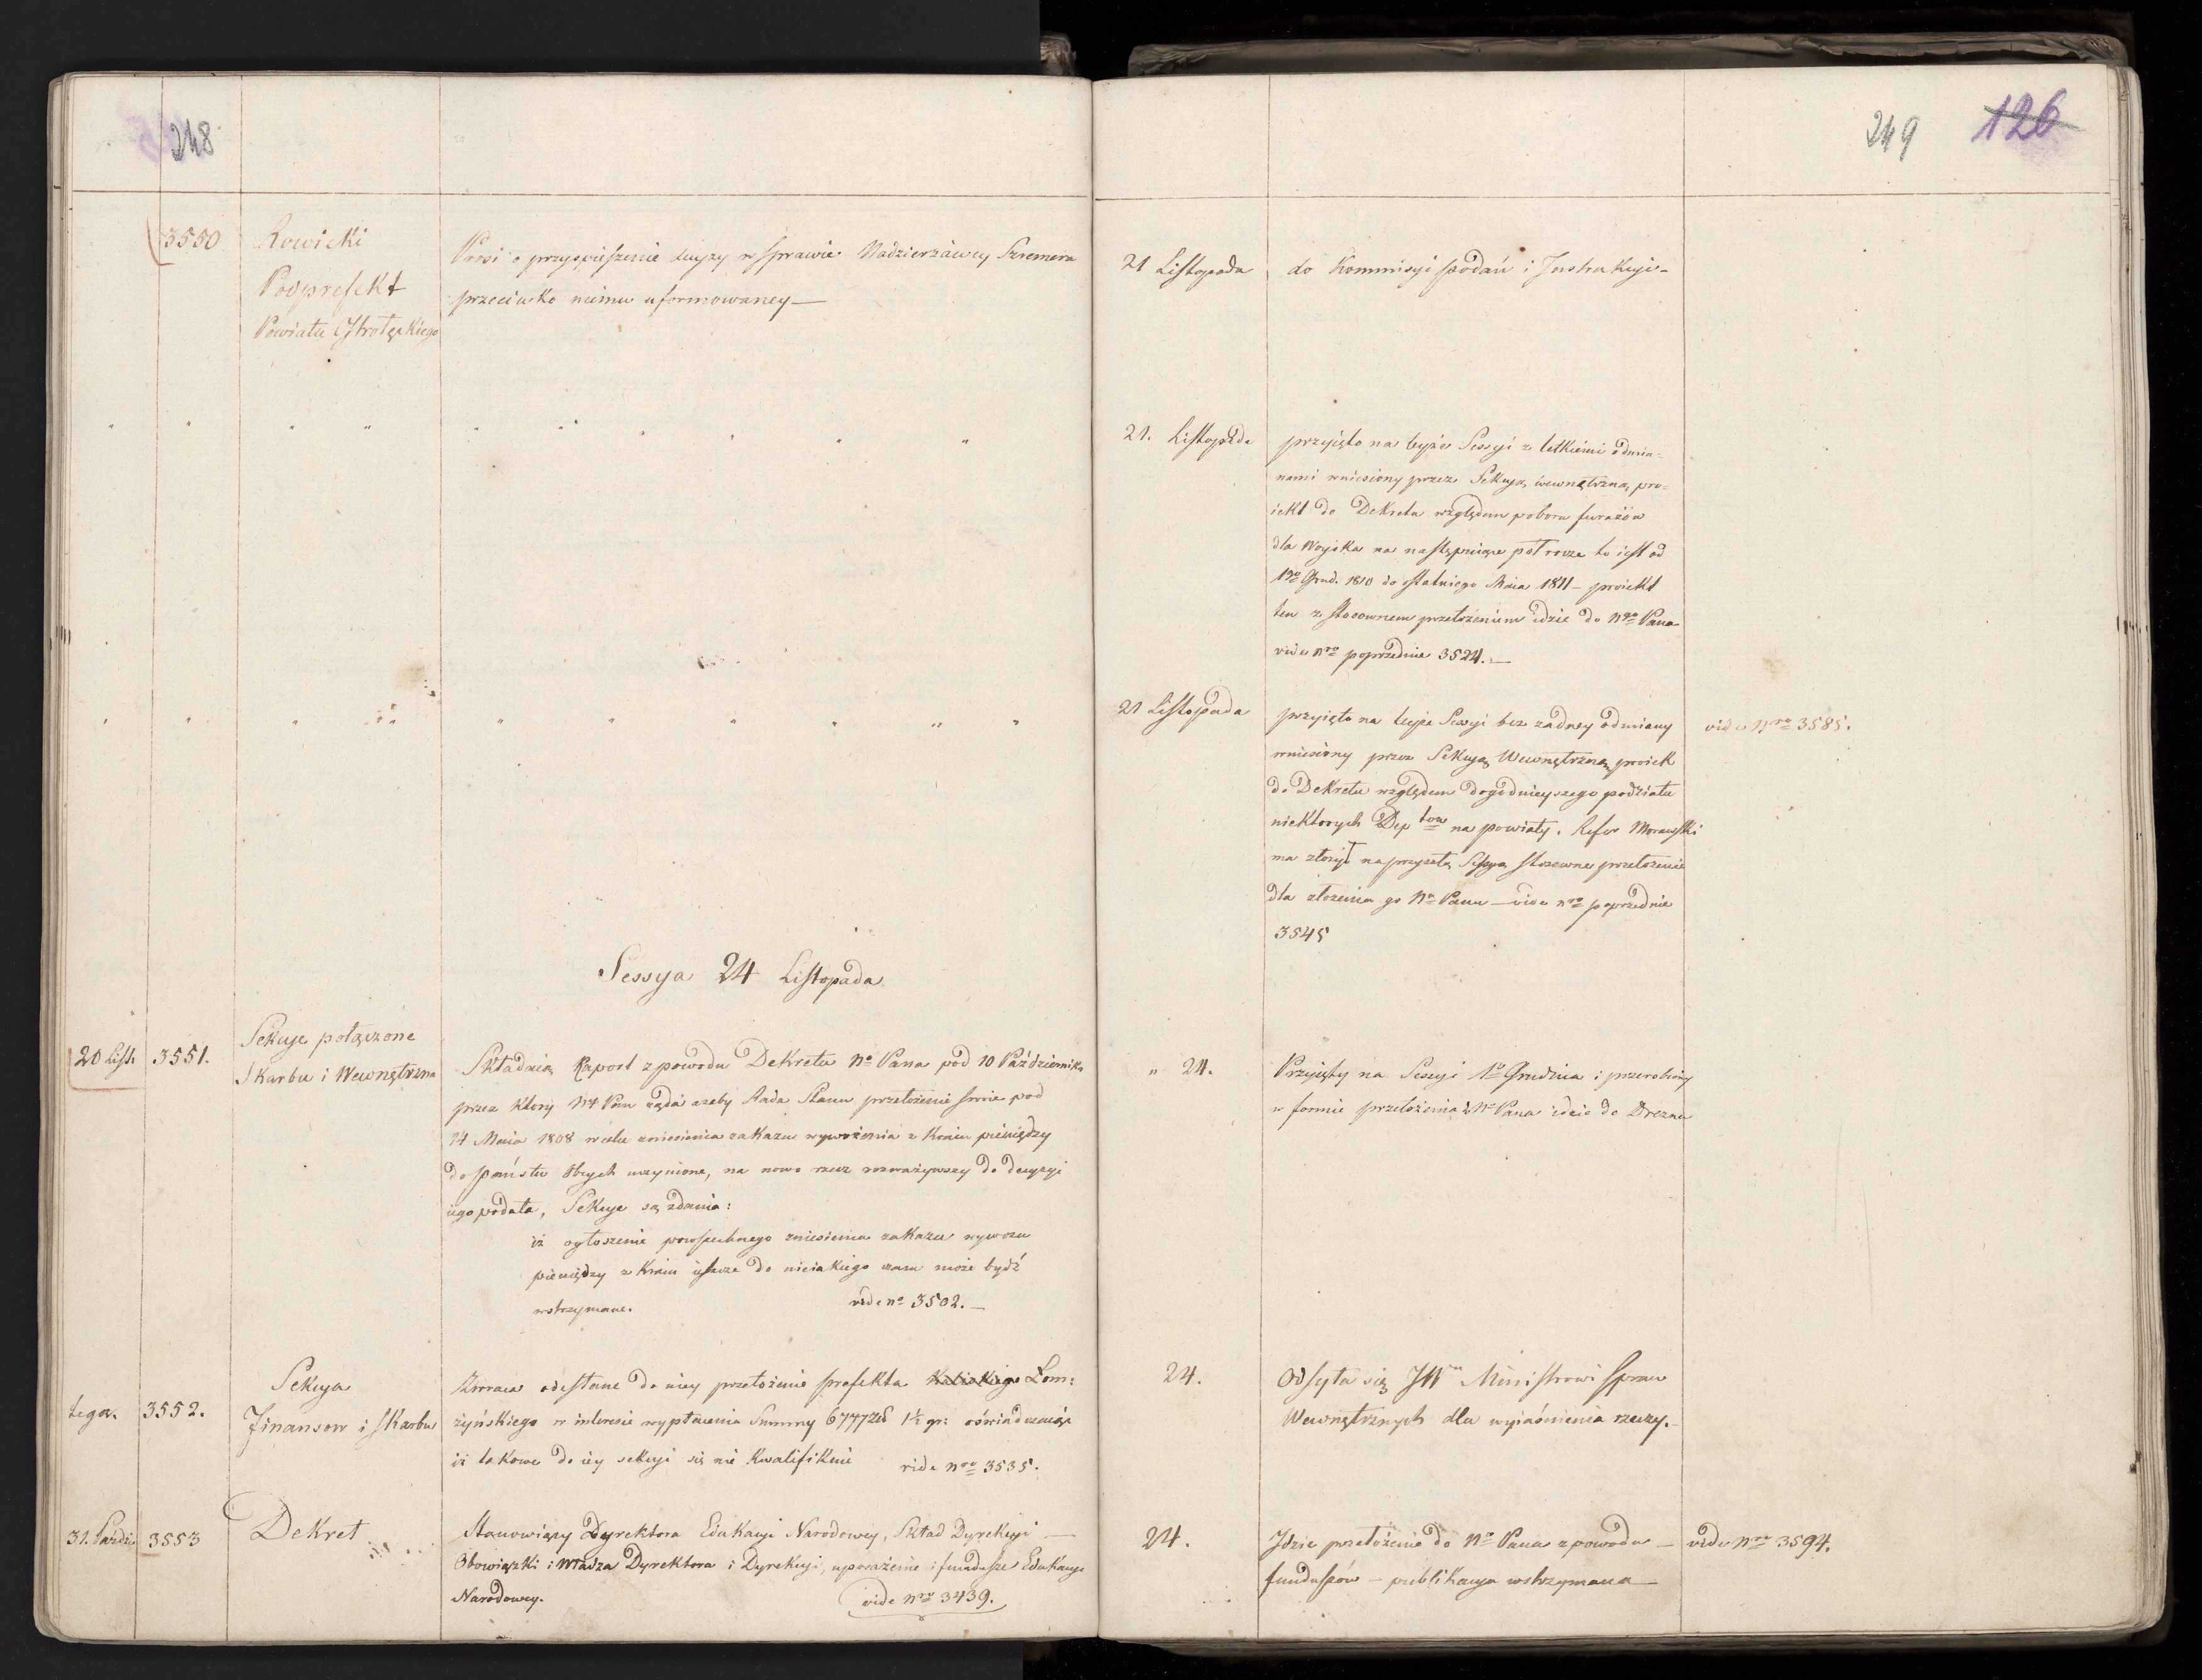 248
3550
Rowicki
Podprefekt
Powiatu Ostrołęckiego
Prosi o przyspieszenie decyzy w sprawie Nadzierzawcy Szremera
przeciwko niemu uformowaney —
Sessya 24 Listopada
20 List. 3551.
Sekcye połączone
Skarbu i Wewnętrzna
Składaią Raport z powodu Dekretu No Pana pod 10 Październik
przez ktory NPan żąda ażeby Rada Stanu przełożenie swoie pod
14 Maia 1808 w celu zniesienia zakazu wywożenia z Kraiu pieniędzy
do państw Obcych uczynione, na nowo rzecz rozważywszy do decyzyi
iego podała, Sekcye są zdania:
iż ogłoszenie powszechnego zniesienia zakazu wywozu
pieniędzy z Kraiu ieszcze do nieiakiego czasu może bydź
wstrzymane. vide no 3502. —
tegoż. 3552.
Sekcya
Finansow i Skarbu
Zwraca odesłane do niey przełożenie prefekta Kaliskiego Łom:
żyńskiego w interesie wypłacenia Summy 6777 zł 1½ gr: oświadczaiąc
iż takowe do iey sekcyi się nie kwalifikuie vide nro 3535.
31. Paździe 3553
Dekret
Stanowiący Dyrektora Edukacyi Narodowey, Skład Dyrekcyi —
Obowiązki i władza Dyrektora i Dyrekcyi, uposażenie i fundusze Edukacyi
Narodowey. vide nro 3439.
249 126
21 Listopada
do Kommisyi podań i Instrukcyi —
21. Listopada
przyięto na teyże Sessyi z letkiemi odmia=
nami wniesiony przez Sekcyą wewnętrzną pro=
iekt do Dekretu względem poboru furażów
dla Woyska na następuiące poł rocze to iest od
1go Grud. 1810 do ostatniego Maia 1811 — proiekt
ten z stosownem przełożeniem idzie do Ngo Pana
vide nro poprzednie 3524. —
21 Listopada
przyięto na teyże Sessyi bez żadney odmiany
wniesiony przez Sekcyą Wewnętrzną proiek
do Dekretu względem dogodnieyszego podziału
niektorych Deptow na powiaty. Refer Morawski
ma złożyć na przyszłą Sessyą stosowne przełożenie
dla złożenia go No Panu — vide nro poprzednie
3545
vide Nro 3585.
" 24.
Przyięty na Sessyi 1o Grudnia i przerobiony
w formie przełożenia do No Pana idzie do Drezna
24.
Odsyła się JW Ministrowi Spraw
Wewnętrznych dla wyiaśnienia rzeczy. —
24.
Idzie przełożenie do No Pana z powodu —
funduszów — publikacya wstrzymana —
vide nro 3594.